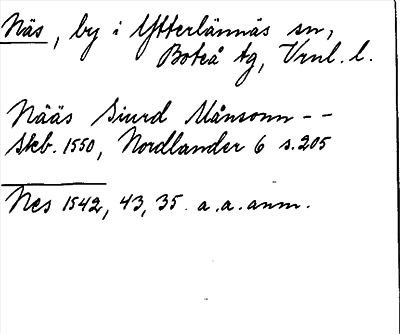 Näs, by i Ytterlännäs sn,
Boteå tg, Vrnl. l.
Nääs Siurd Månsonn - -
Skb. 1550, Nordlander 6 s. 205
Nes 1542, 43, 35. a. a. anm.